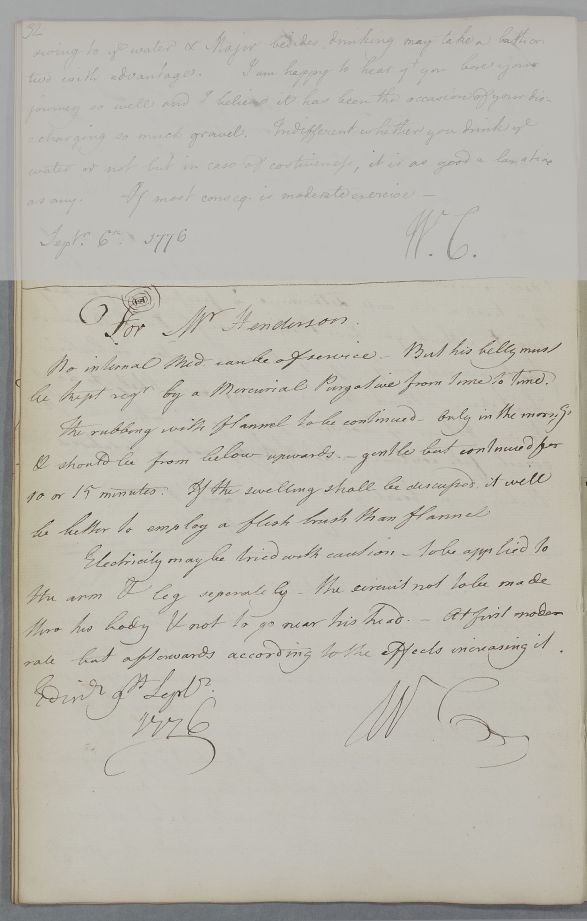 52
owing to ye water & Major besides drinking may take a bath or
two with advantages. I am happy to hear yt you bore your
journey so well and I believe it has been the occasion of your dis-
charging so much gravel. Indifferent whether you drink ye
water or not but in case of costiveness, it is as good a laxative
as any. Of most conseq. is moderate exercise —
Septr. 6th. 1776
W. C.
For Mr Henderson.
No internal Med can be of service - But his belly must
be kept regr by a Mercurial Purgative from time to time.
The rubbing with flannel to be continued - Only in the morngs
& should be from below upwards. - gentle but continued for
10 or 15 minutes. If the swelling shall be discussed it will
be better to employ a flesh brush than flannel
Electricity may be tried with caution - to be applied to
the arm & leg seperately - the circuit not to be made
thro his body & not to go near his head. - At first mode-
rate but afterwards according to the effects increasing it.
Edinr. 9th Septr.
1776
W C